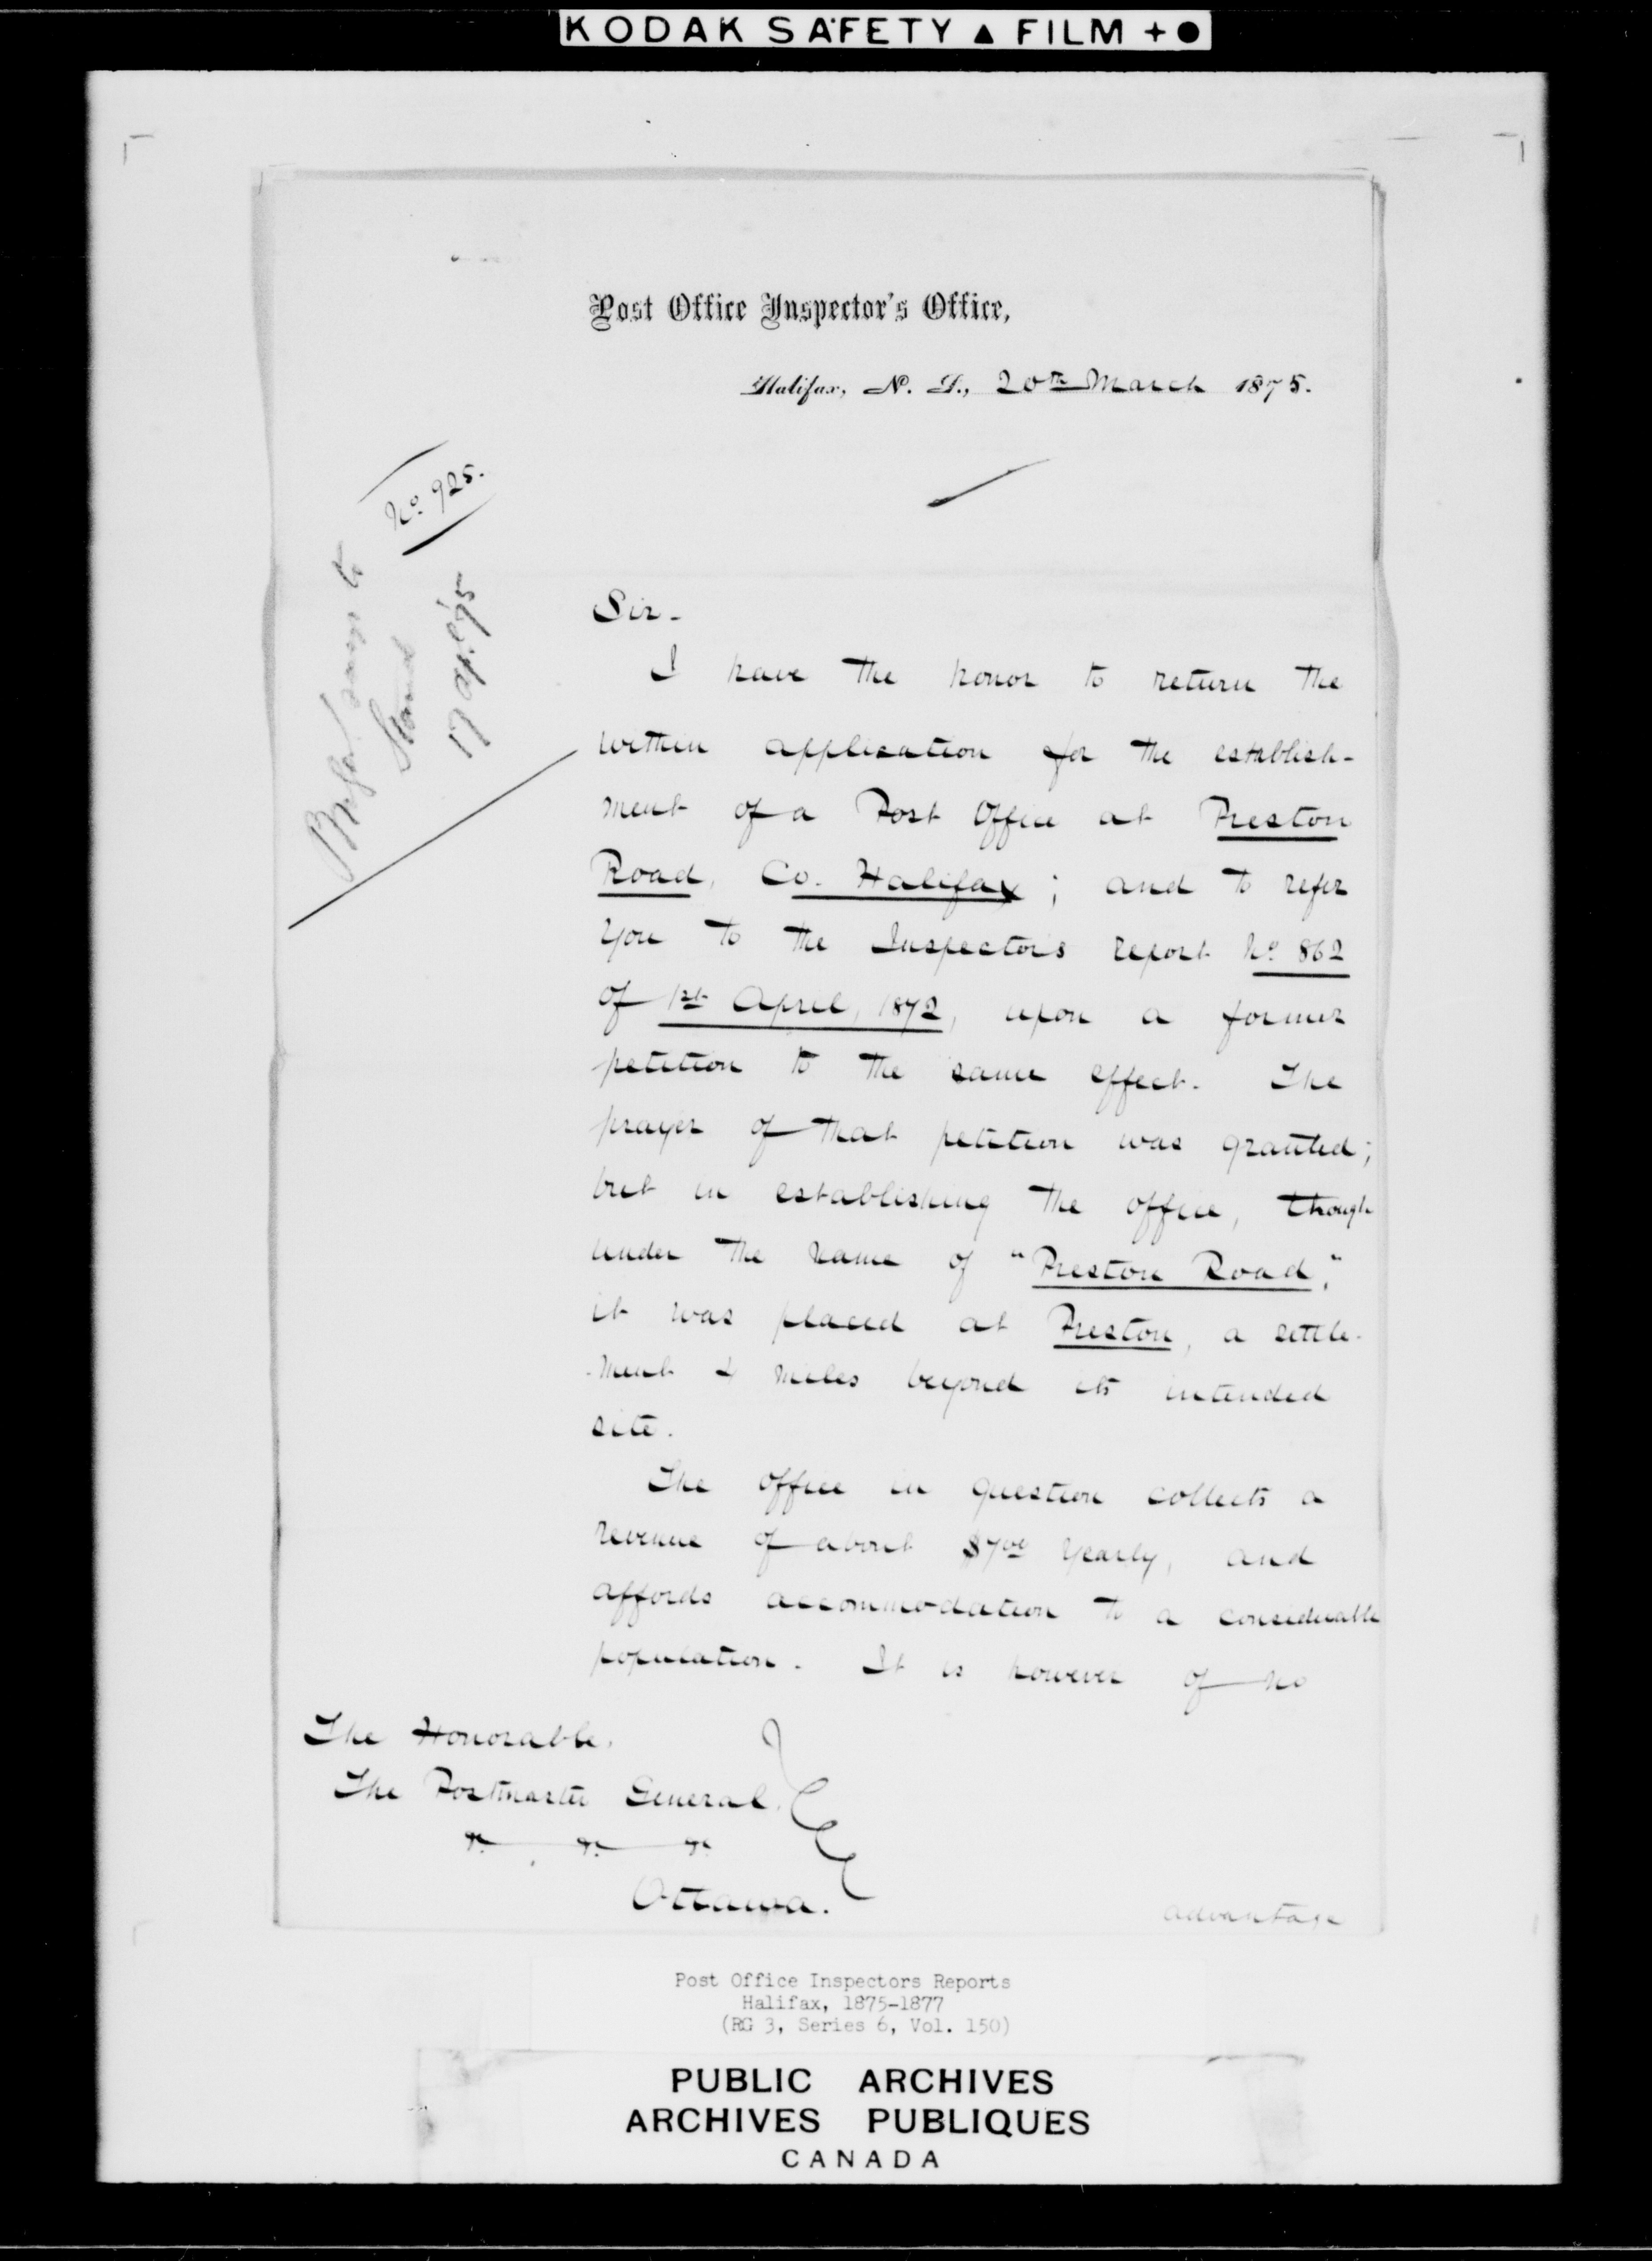 KODAK SAFETY ▲ FILM +●
Post Office Inspector's Office,
Halifax, N. S., 20th March 1875.
No. 925.
to
Stand
17 Apl. '75
Sir -
I have the honor to return the
within application for the establish-
ment of a Post Office at Preston
Road, Co. Halifax; and to refer
you to the Inspector's report No. 862
of 1st April, 1872, upon a former
petition to the same effect. The
prayer of that petition was granted;
but in establishing the office, though
under the name of "Preston Road,"
it was placed at Preston, a settle-
-ment 4 miles beyond its intended
site.
The office in question collects a
revenue of about $7 00 yearly, and
affords accommodation to a considerable
population. It is however of no
The Honorable,
The Postmaster General,
&c. &c. &c.
Ottawa.
advantage
Post Office Inspectors Reports
Halifax, 1875-1877
(RG 3, Series 6, Vol. 150)
PUBLIC ARCHIVES
ARCHIVES PUBLIQUES
CANADA